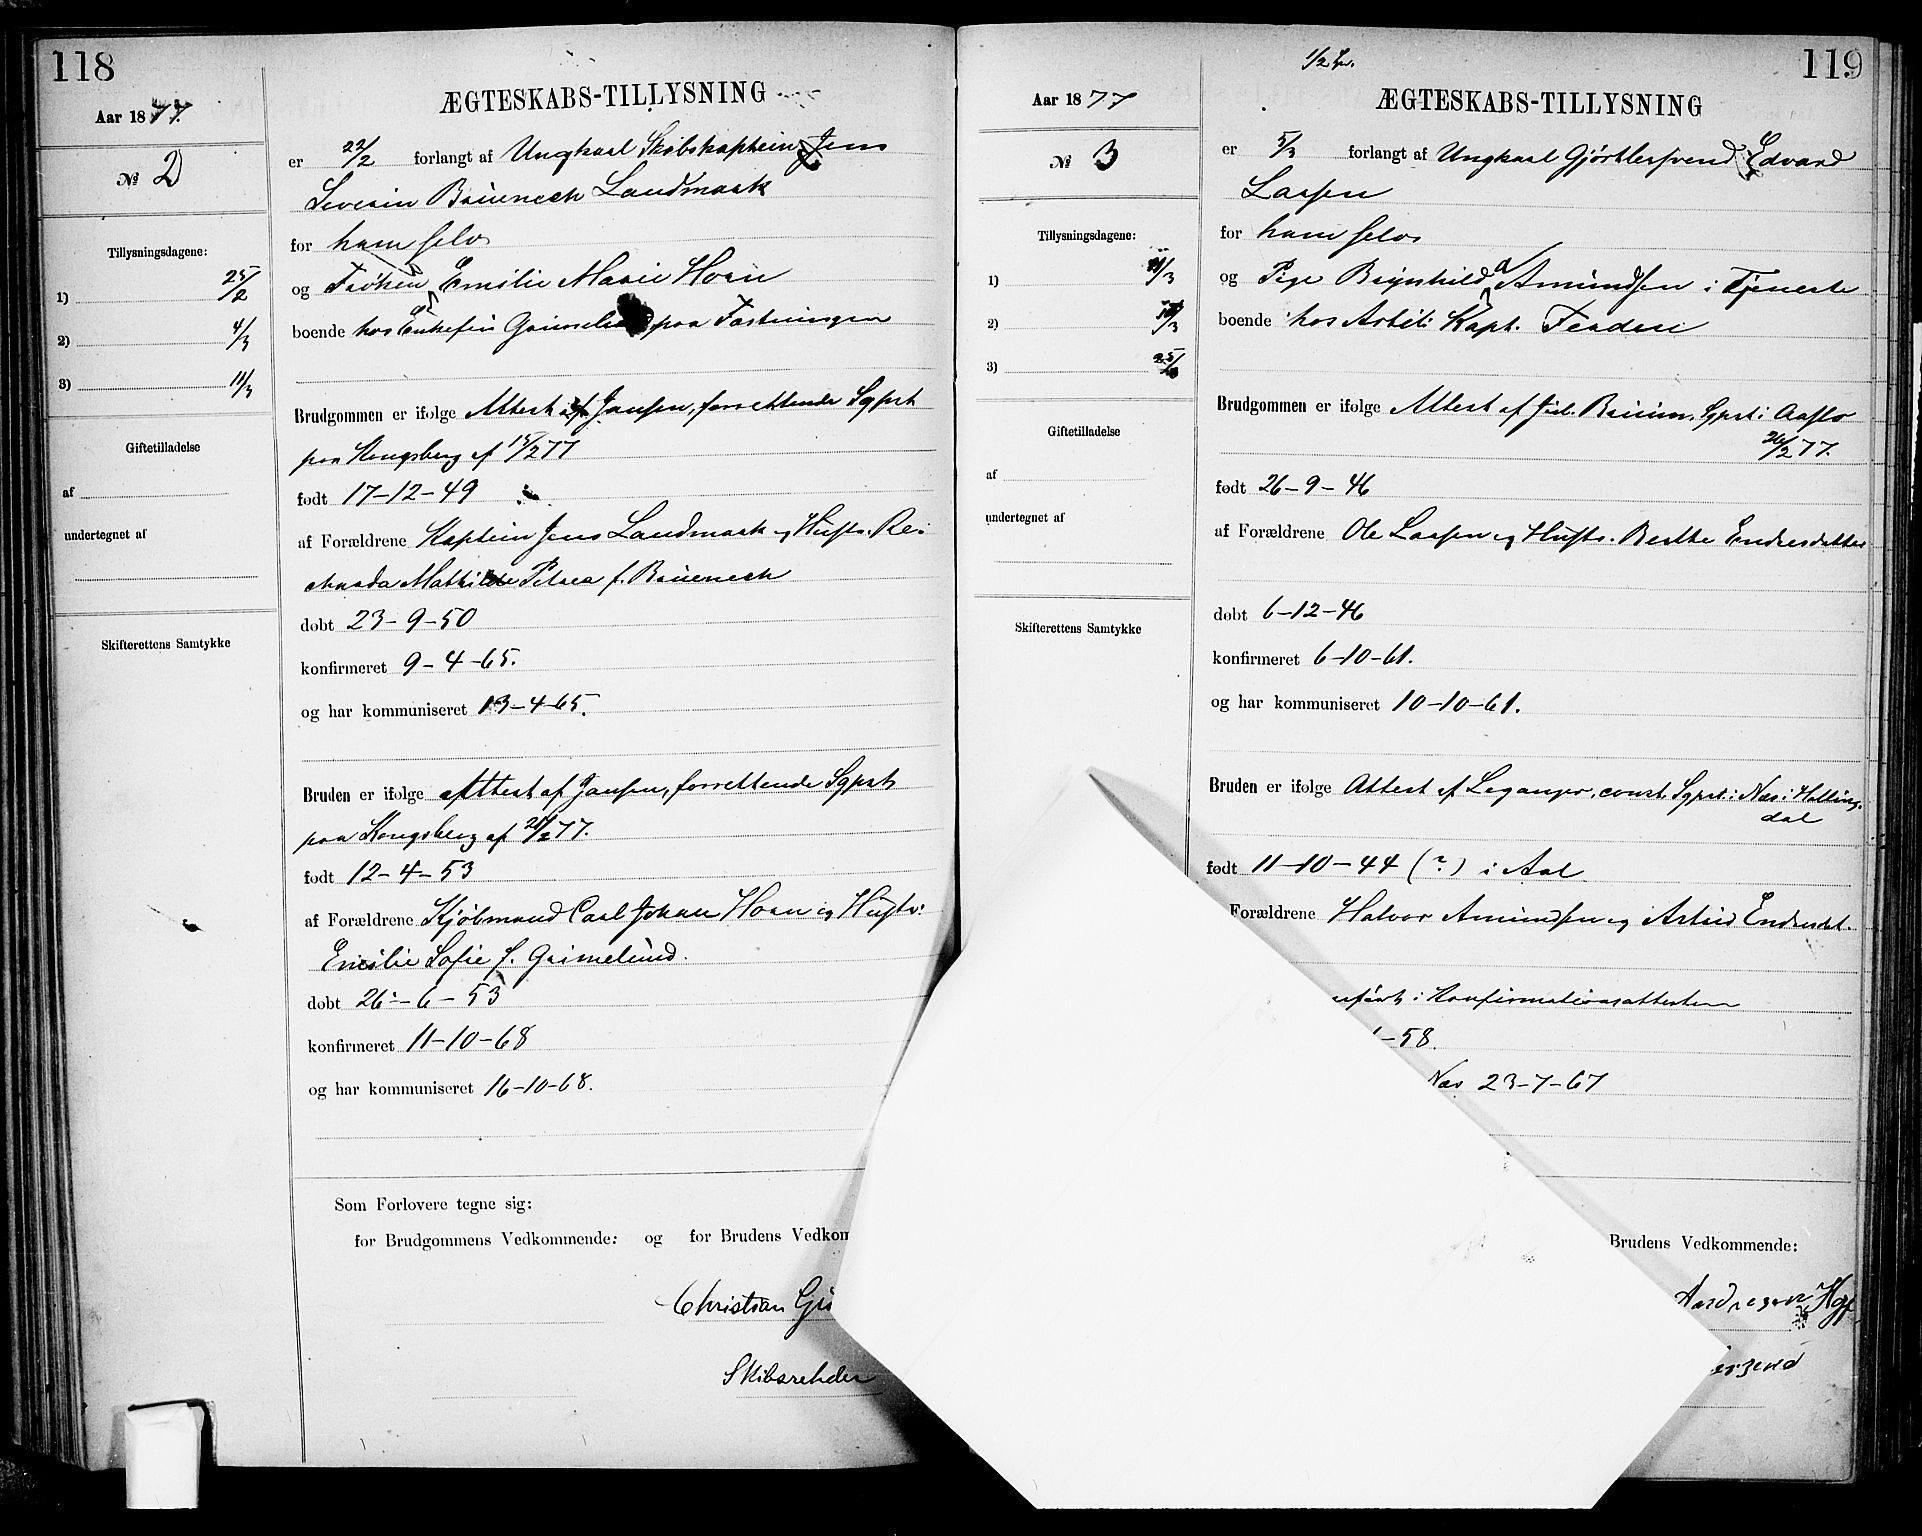 118
ÆGTESKABS-TILLYSNING
Aar 1877.
№ 2
Tillysningsdagene:
1) 25/2
2) 4/3
3) 11/3
Giftetilladelse
af
undertegnet af
Skifterettens Samtykke
er 22/2 forlangt af Ungkarl Skibskaptein Jens
Severin Bruenech Landmark
for ham selv
og Frøken Emilie Marie Horn
boende hos Enkefru Grimelund paa Fæstningen
Brudgommen er ifølge Attest af Jansen, forrettende Sgprst
paa Kongsberg af 15/2 77
født 17-12-49
af Forældrene Kaptein Jens Landmark og Hustr. Ri-
charda Mathilde Petrea f. Bruenech
døbt 23-9-50
konfirmeret 9-4-65.
og har kommuniseret 13-4-65.
Bruden er ifølge Attest af Jansen, forrettende Sgprst
paa Kongsberg af 21/2 77.
født 12-4-53
af Forældrene Kjøbmand Carl Johan Horn og Hustr:
Emilie Sofie f. Grimelund.
døbt 26-6-53
konfirmeret 11-10-68
og har kommuniseret 16-10-68.
Som Forlovere tegne sig:
for Brudgommens Vedkommende: og for Brudens Vedkom
Christian Gri
Skibsreder
1/2
119
ÆGTESKABS-TILLYSNING
Aar 1877
№ 3
Tillysningsdagene:
1) 11/3
2) 18/3
3) 25/3
Giftetilladelse
af
undertegnet af
Skifterettens Samtykke
er 5/3 forlangt af Ungkarl Gjørtlersvend Edvard
Larsen
for ham selv
og Pige Brynhild Amundsen i Tjeneste
boende hos Artill: Kapt.
Brudgommen er ifølge Attest af Jul. Bruun, Sgprst i Aaslo
26/2 77.
født 26-9-46
af Forældrene Ole Larsen og Hustr. Berthe Endresdatter
døbt 6-12-46
konfirmeret 6-10-61.
og har kommuniseret 10-10-61.
Bruden er ifølge Attest af Leganger, const. Sgprst i Næs i Halling-
dal
født 11-10-44 (?) i Aal
Forældrene Halvor Amundsen og Astrid Endresdat.
anført i Konfirmationsattesten
-58.
Næs 23-7-67
Brudens Vedkommende: